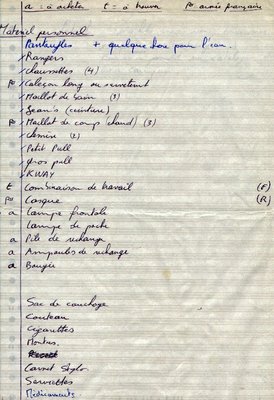 a = à acheter t = à trouver
Matériel personnel
Pantoufles + quelque chose pour l'eau.
Rangers
chaussettes (4)
Caleçon long ou survêtement
Maillot de bain (3)
Jean's (ceinture)
Maillot de corps (chaud) (3)
chemise (2)
Petit Pull
gros pull
KWAY
t Combinaison de travail (F)
Casque (R)
a Lampe frontale
Lampe de poche
a Pile de rechange
a Ampoules de rechange
a Bougie
Sac de couchage
Couteau
Cigarettes
Montre
Carnet Stylo
Serviettes
Médicaments